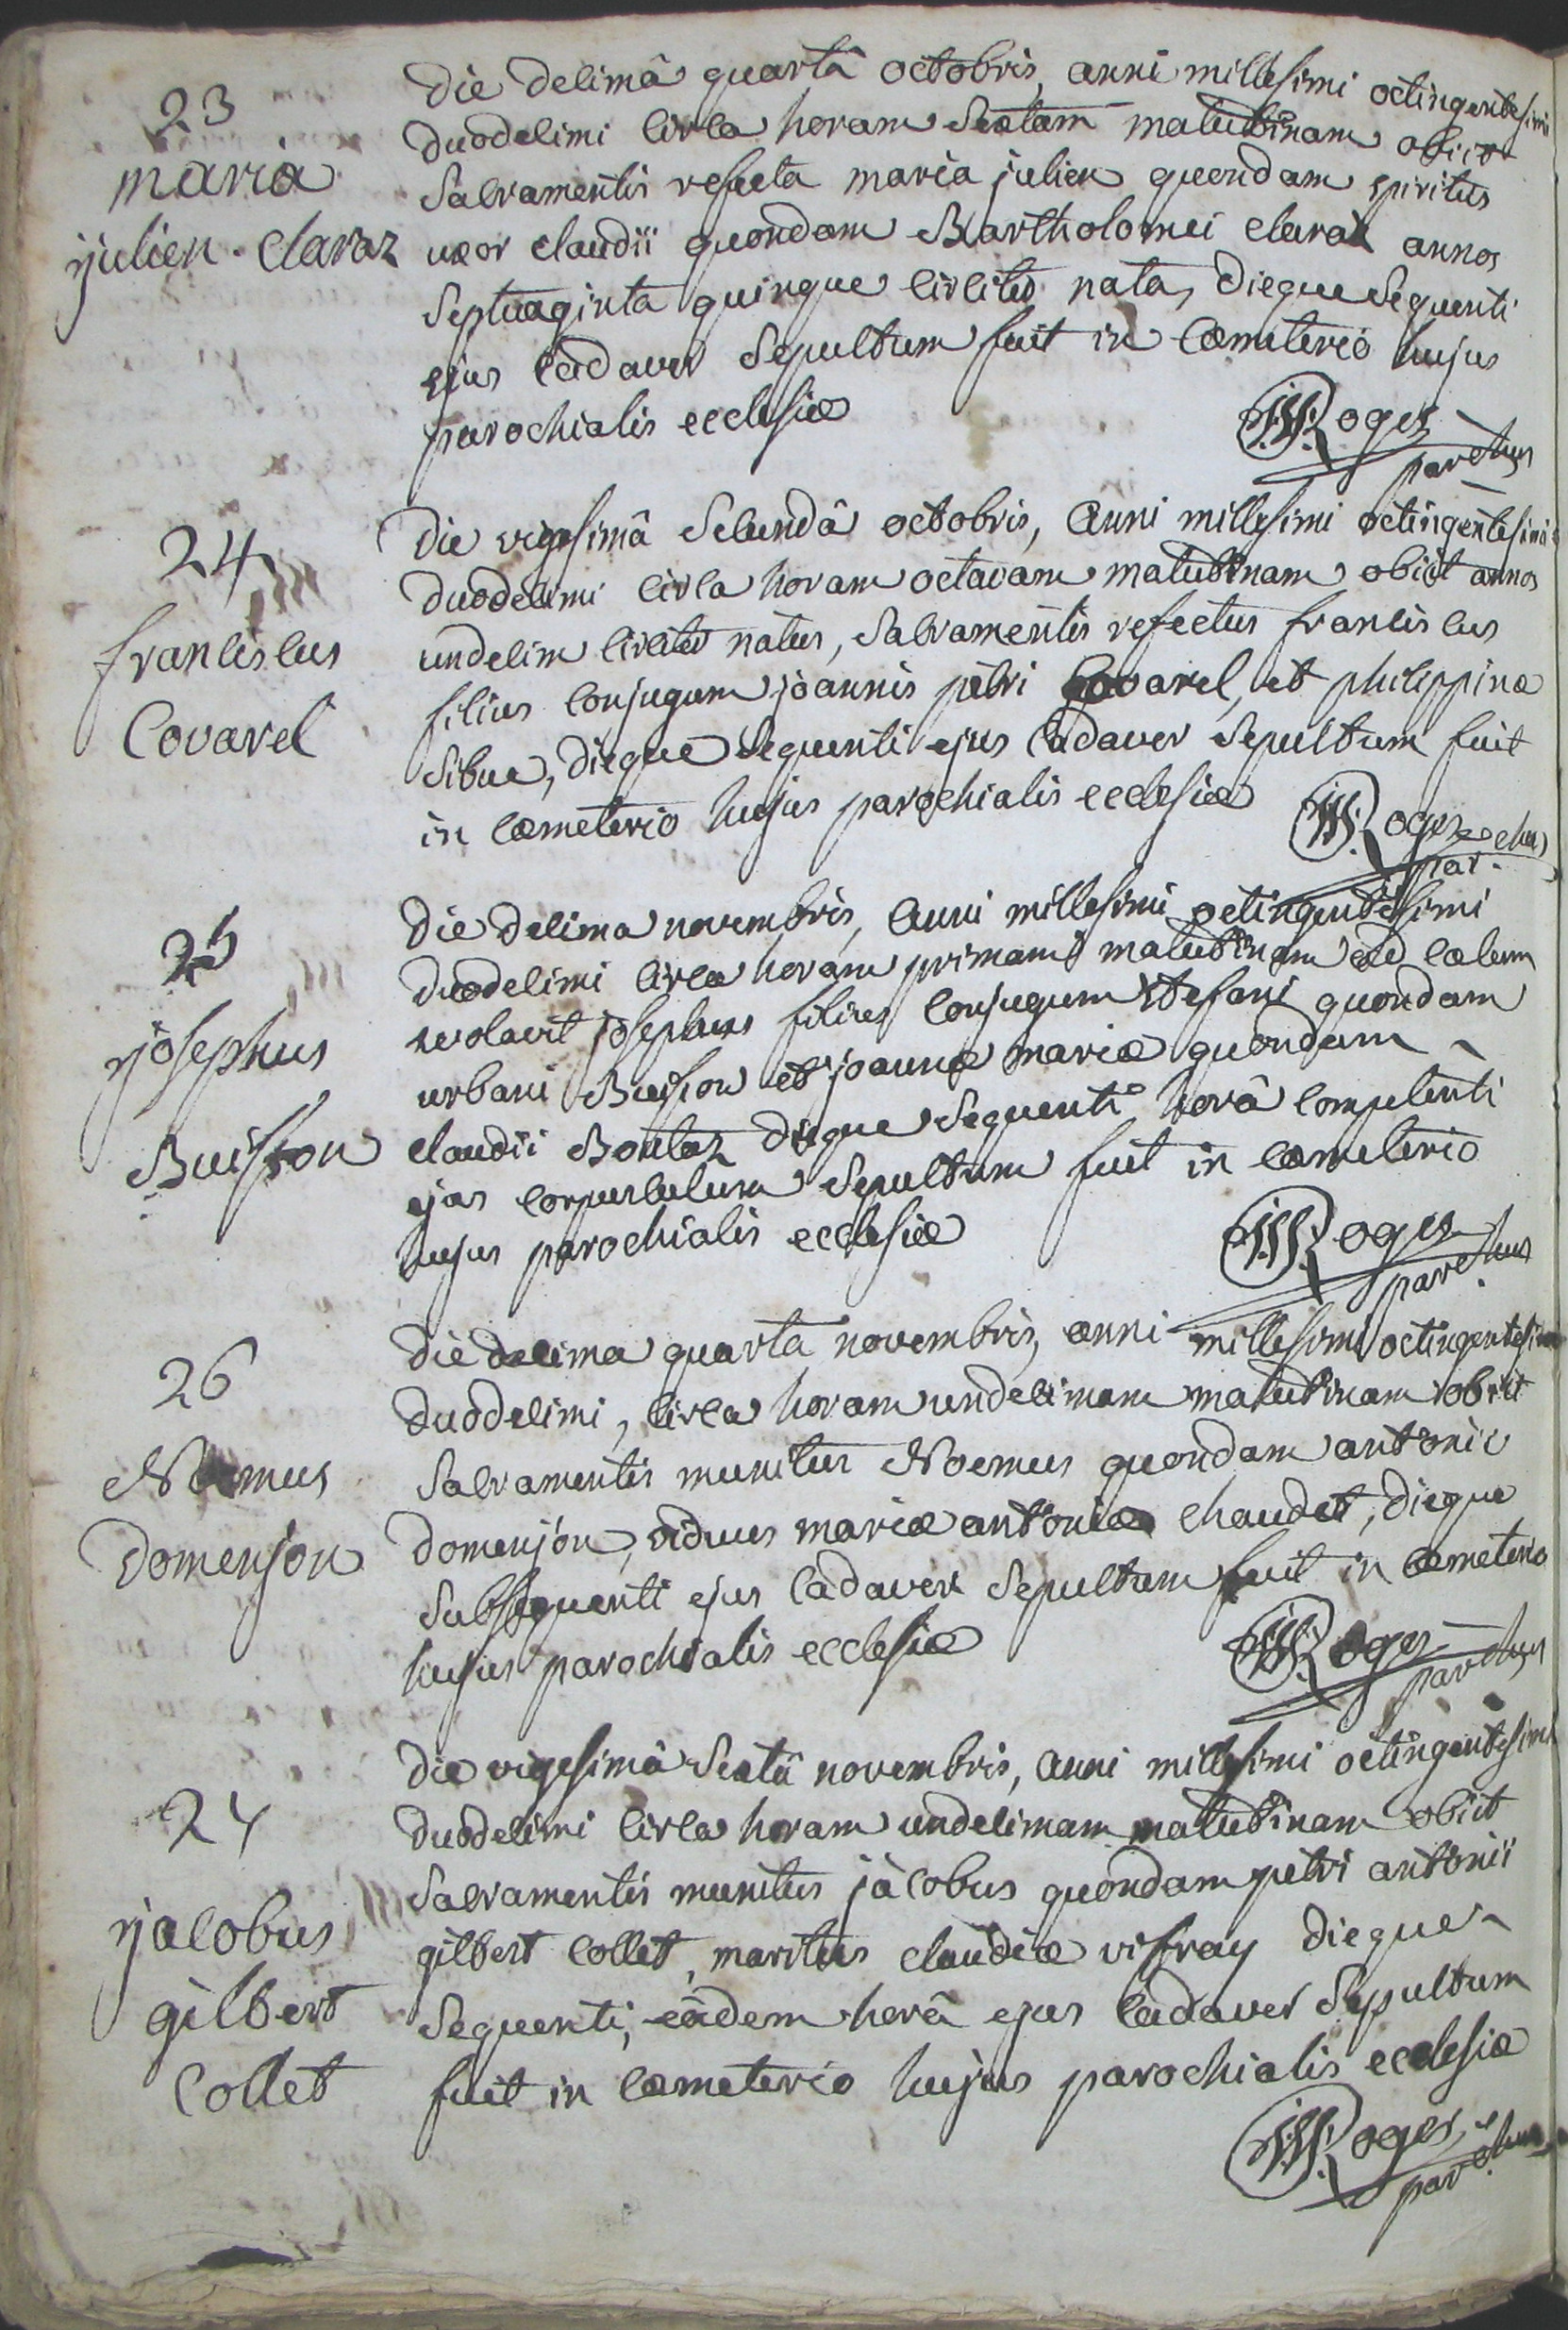 23
maria
julien claraz
Die decimâ quartâ octobris, anni millesimi octingentesimi
duodecimi circa horam sextam matutinam obiit
sacramentis refecta maria julien quondam spiritus
uxor claudii quondam Bartholomei claraz annos
septuaginta quinque circiter nata, dieque sequenti
ejus cadaver sepultum fuit in cœmeterio hujus
parochialis ecclesiæ
Roges
parchus
24
franciscus
Covarel
Die vigesimâ secundâ octobris, anni millesimi octingentesimi
duodecimi circa horam octavam matutinam obiit annos
undecim circiter natus, sacramentis refectus franciscus
filius conjugum joannis petri Covarel, et philippinæ
sibue, dieque sequenti ejus cadaver sepultum fuit
in cœmeterio hujus parochialis ecclesiæ
Roges
parchus
25
josephus
Buisson
Die decima novembris, anni millesimi octingentesimi
duodecimi circa horam primam matutinam ad cœlum
evolavit josephus filius conjugum stefani quondam
urbani Buisson et joannæ mariæ quondam
claudii Boutaz dieque sequenti horâ competenti
ejus corpusculum sepultum fuit in cœmeterio
hujus parochialis ecclesiæ
Roges
parchus
26
Noemus
Domenjon
Die decima quarta novembris, anni millesimi octingentesimi
duodecimi, circa horam undecimam matutinam obiit
sacramentis munitus Noemus quondam antonii
domenjon, viduus mariæ antoniæ chaudet, dieque
subsequenti ejus cadaver sepultum fuit in cœmeterio
hujus parochialis ecclesiæ
Roges
parchus
27
jacobus
gilbert
Collet
Die vigesimâ sextâ novembris, anni millesimi octingentesimi
duodecimi circa horam undecimam matutinam obiit
sacramentis munitus jacobus quondam petri antonii
gilbert collet, maritus claudiæ vifray dieque
sequenti, eâdem horâ ejus cadaver sepultum
fuit in cœmeterio hujus parochialis ecclesiæ
Roges
parchus